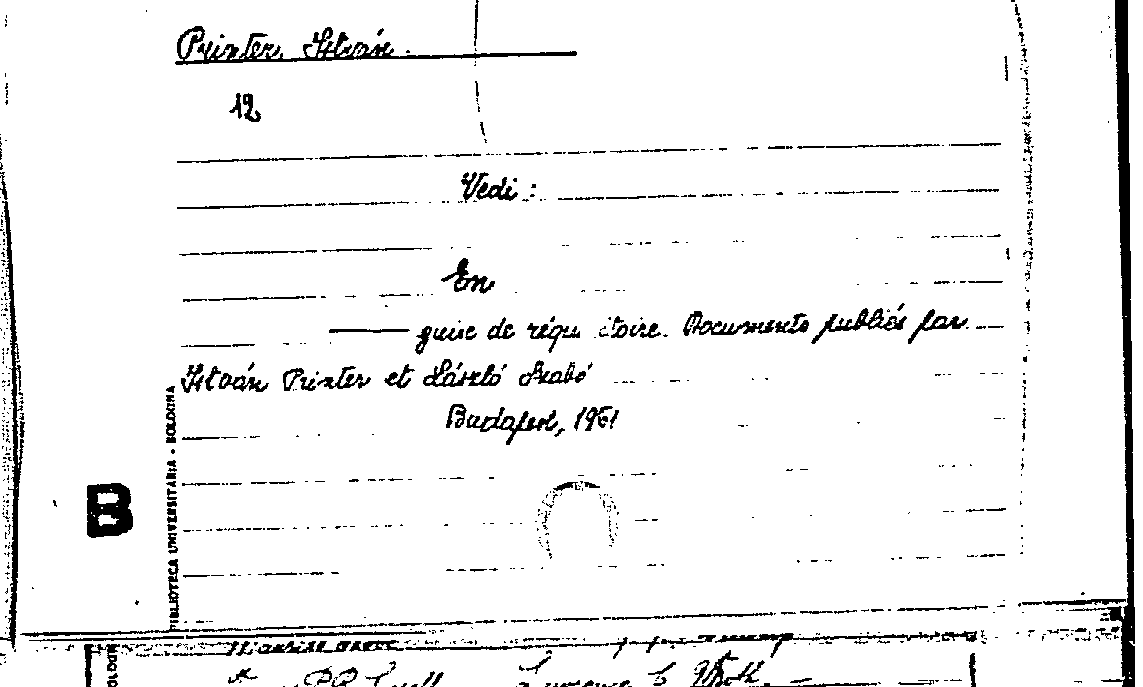 Printer, István.
12
Vedi :
En
guise de réquisitoire. Documents publiés par
István Printer et László Szabó
Budapest, 1961
B
BIBLIOTECA UNIVERSITARIA - BOLOGNA